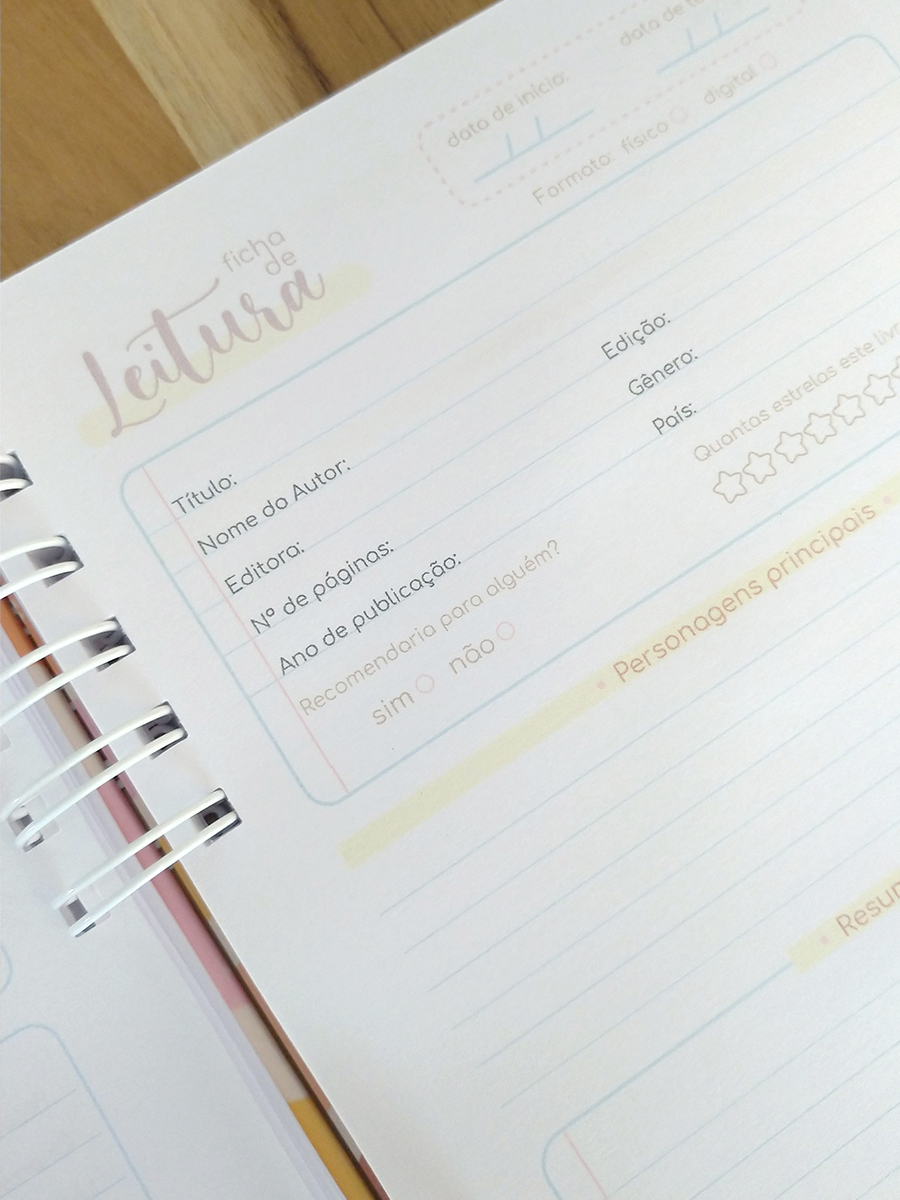 data de início:
data de
Formato: físico digital
ficha
de
Leitura
Título:
Nome do Autor:
Editora:
Edição:
Nº de páginas:
Gênero:
Ano de publicação:
País:
Recomendaria para alguém?
sim não
Quantas estrelas este
Personagens principais